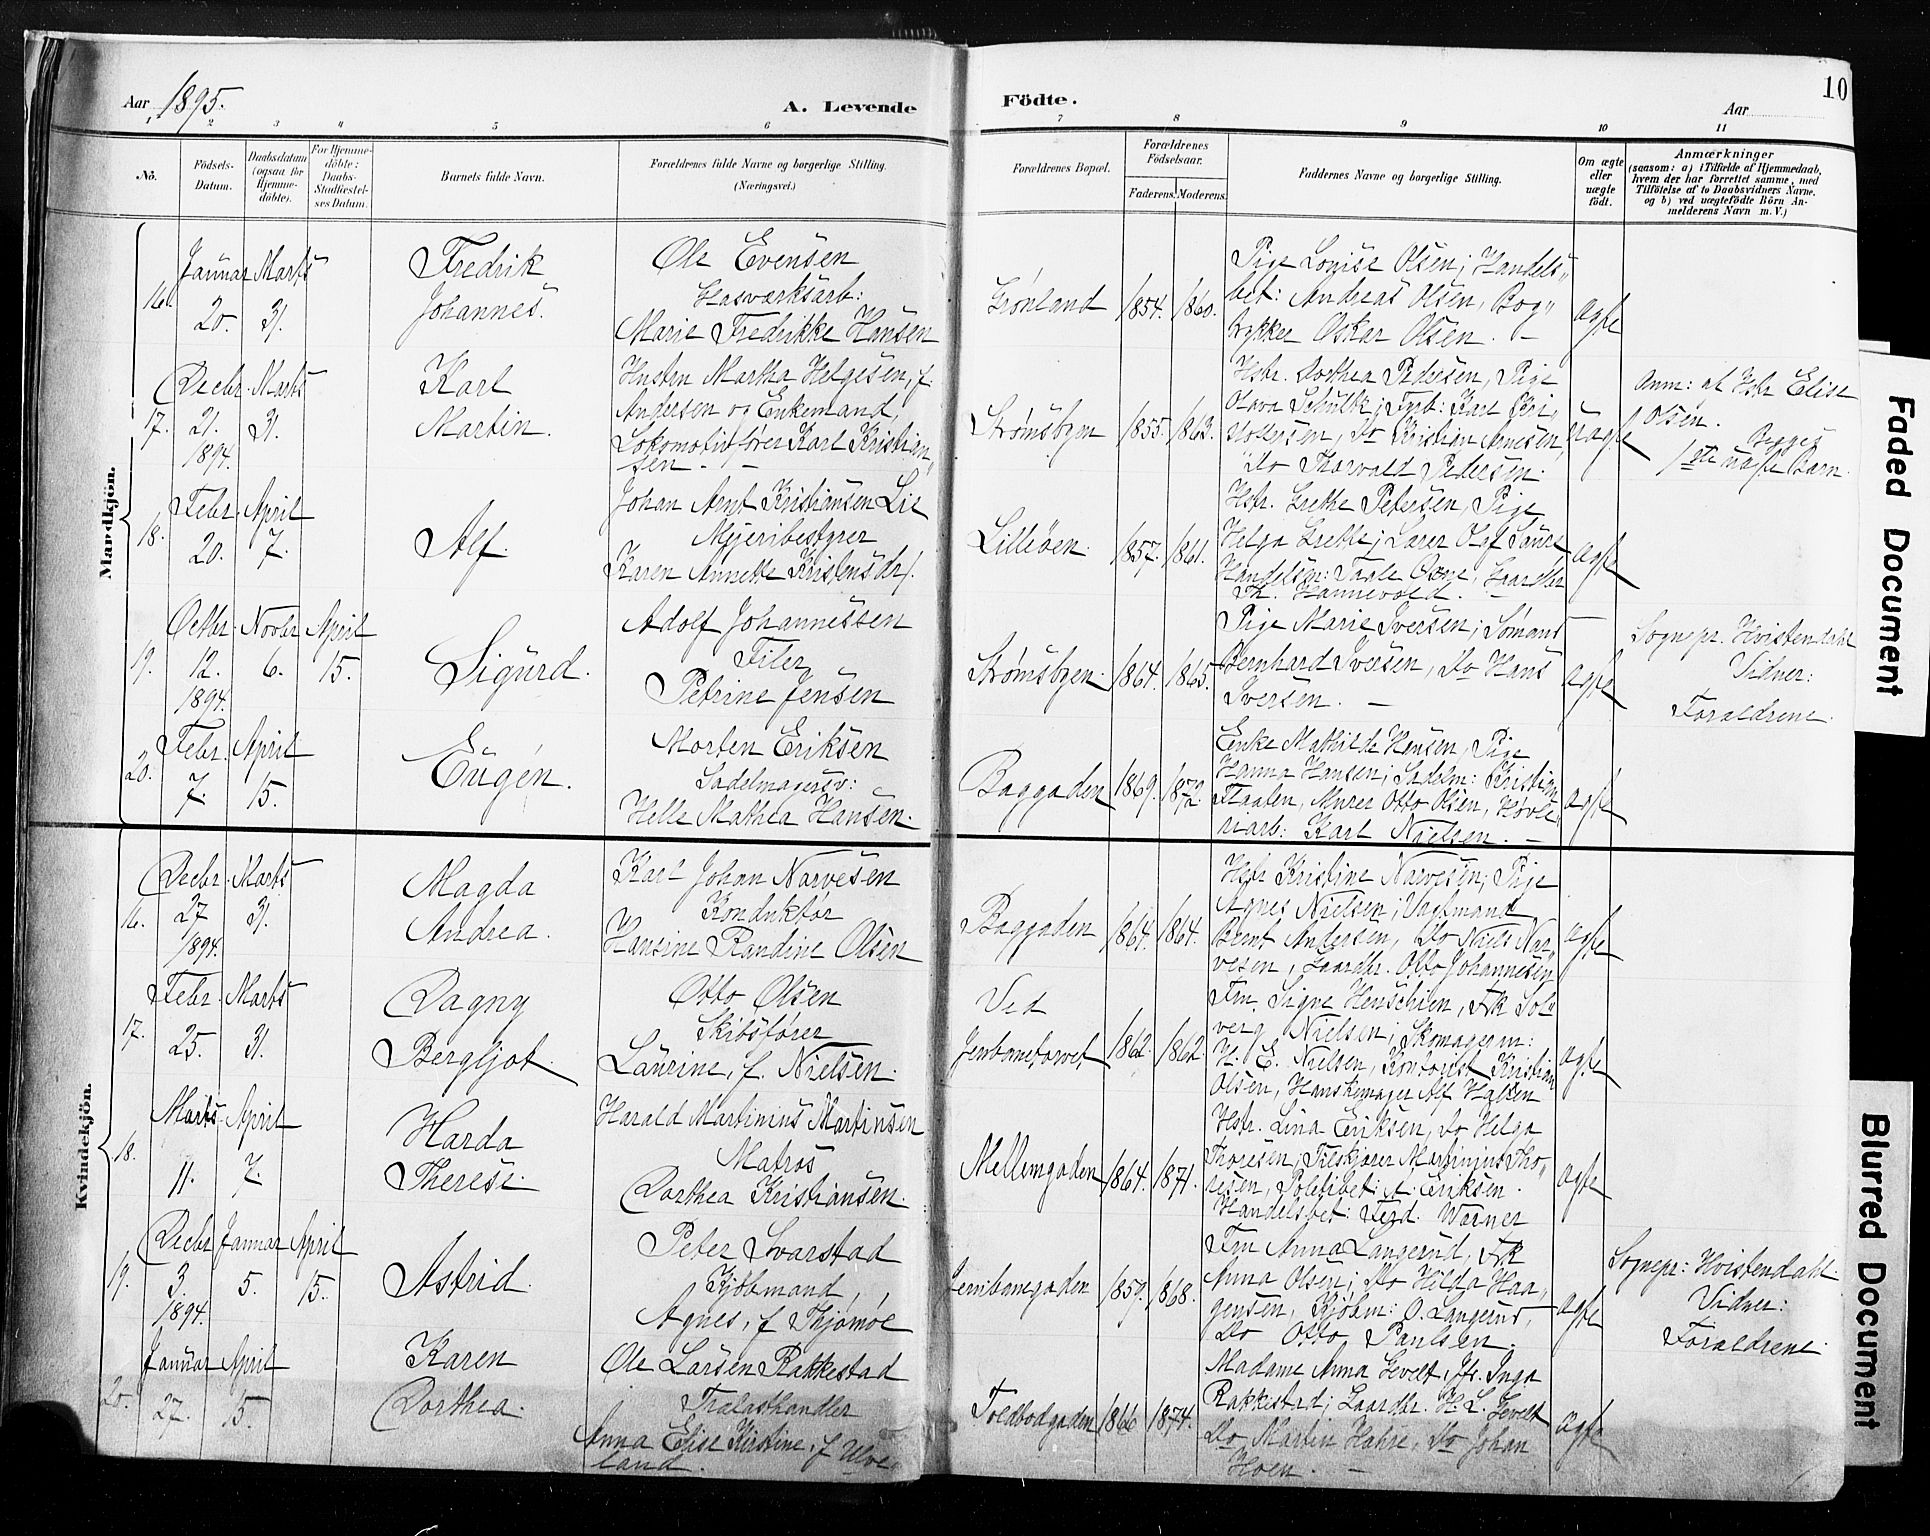 Aar 1895.
A. Levende
Födte.
Aar
10
1 2 3 4 5 6 7 8 9 10 11
No.
Födsels-
Datum.
Daabsdatum
(ogsaa for
Hjemme-
döbte).
For Hjemme-
döbte:
Daabs-
Stadfæstel-
ses Datum.
Barnets fulde Navn.
Forældrenes fulde Navne og borgerlige Stilling.
(Næringsvei.)
Forældrenes Bopæl.
Forældrenes
Födselsaar.
Faderens. Moderens.
Faddernes Navne og borgerlige Stilling.
Om ægte
eller
uægte
födt.
Anmærkninger
(saasom: a) i Tilfælde af Hjemmedaab,
hvem der har forrettet samme, med
Tilföielse af to Daabsvidners Navne,
og b) ved uægtefödte Börn An-
melderens Navn m. V.)
Mandkjön.
16.
Januar
20.
Marts
31.
Fredrik
Johannes.
Ole Evensen
Gasværksarb:
Marie Fredrikke Hansen
Grønland
1854. 1860.
Pige Lovise Olsen; Handels"
bet: Andreas Olsen, Bog"
trykker Oskar Olsen. -
ægte
17.
Decbr.
21.
1894.
Marts
31.
Karl
Martin.
Hustru Martha Helgesen, f.
Andersen og Enkemand,
Lokomotivfører Karl Kristian"
sen. -
Strømsbyen
1855. 1863.
Hstr. Dorthea Pedersen, Pige
Olava Schultz; Fyrb: Karl Kri"
stoffersen, Do Kristian Arnesen,
Do Thorvald Pedersen.
uægte
Anm: af Hstr Elise
Olsen.
Begges
1ste uægte Barn.
18.
Febr.
20.
April
7.
Alf.
Johan Arnt Kristiansen Lie
Mejeribestyrer
Karen Annette Kristensdr.
Lilleöen.
1857. 1861.
Hstr. Grethe Petersen, Pige
Helga Grette; Lærer Olaf Saure,
Handelsm: Taale Oxne, Gaardbr
Th. Hannevold.
ægte
19.
Octbr.
12.
1894.
Novbr
6.
April
15.
Sigurd.
Adolf Johannessen
Filer
Petrine Jensen
Strømsbyen.
1864. 1865.
Pige Marie Iversen; Sömand
Bernhard Iversen, Do Hans
Iversen. -
ægte
Sognepr. Hvistendahl
Vidner:
Forældrene.
20.
Febr.
7.
April
15.
Eugén.
Morten Eriksen
Sadelmagersv:
Helle Mathea Hansen.
Baggaden
1869. 1872.
Enke Mathilde Hansen, Pige
Hanna Hansen; Sadelm: Kristian
Flaaten, Murer Otto Olsen, Høvle"
riarb: Karl Nielsen. -
ægte
Kvindekjön.
16.
Decbr.
27
1894.
Marts
31.
Magda
Andrea.
Karl Johan Narvesen
Konduktør
Hansine Randine Olsen
Baggaden
1864. 1864.
Hstr Kristine Narvesen; Pige
Agnes Nielsen; Vagtmand
Bernt Andersen, Do Niels Nar"
vesen, Gaardbr. Otto Johannesen
ægte
17.
Febr.
25.
Marts
31.
Dagny
Bergljot.
Otto Olsen
Skibsfører
Laurine, f. Nielsen.
Ved
Jernbanetorvet
1862. 1862.
Fru Signe Henschien, Frk Sol"
verg Nielsen; Skomagerm:
H. E. Nielsen, Kontorist Kristian
Olsen, Hanskemager Alf Halsen
ægte
18.
Marts
11.
April
7.
Harda
Therese.
Harald Martinius Martinsen
Matros
Dorthea Kristiansen.
Mellemgaden
1864. 1871.
Hstr. Lina Eriksen, Do Helga
Thoresen; Tilskjærer Martinius Tho"
resen, Politibet: A. Eriksen.
Handelsbet: Ferd. Warner
ægte
19.
Decbr
3.
1894.
Januar
5.
April
15.
Astrid.
Peter Svarstad
Kjöbmand,
Agnes, f. Thjømøe
Jernbanegaden
1859. 1868.
Fru Anna Langerud, Frk
Anna Olsen; Do Hilda Haa"
gensen, Kjöbm: O. Langerud,
Do Otto Paulsen.
ægte
Sognepr: Hvistendahl.
Vidner:
Forældrene.
20.
Januar
27.
April
15.
Karen
Dorthea.
Ole Larsen Rakkestad
Trælasthandler
Anna Elise Kirstine, f. Ulve"
land.
Toldbodgaden
1866 1874.
Madame Anna Gevelt, Jfr. Inga
Rakkestad; Gaardbr. H. L. Gevelt
Do Martin Hahre, Do Johan
Hoen. -
ægte
Faded Document
Blurred Document